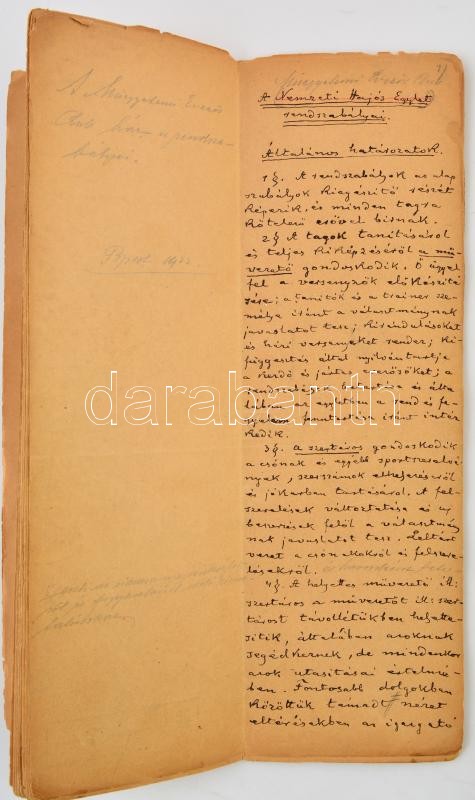 A Műegyetemi Evezős
Club ház- és rendsza-
bályai.
Bpest 1922
Műegyetemi Evezős Club
A Nemzeti Hajós Egylet
rendszabályai.
Általános határozatok.
1§. A rendszabályok az alap
szabályok kiegészítő részét
képezik, és minden tagra
kötelező erővel birnak.
2§ A tagok tanításáról
és teljes kiképzéséről a mű-
vezető gondoskodik. Ő ügyel
fel a versenyzők előkészíté
sére; a tanítók és a trainer sze-
mélye iránt a választmánynak
javaslatot tesz; kirándulásokat
és házi versenyeket rendez; ki-
függesztés által nyilvántartja
a kezdő és jártas evezősöket; a
rendszabályok betartása és álta-
lában az egyletben a rend és fe-
gyelem fenntartása iránt intéz
kedik.
3§. a szertáros gondoskodik
a csónak és egyéb sportszerelvé-
nyek, szerszámok elhelyezéséről
és jókarban tartásáról. A fel-
szerelések változtatása és új
beszerzések felől a választmány
nak javaslatot tesz. Leltárt
vezet a csónakokról és felszere-
lésekről.
4§. A helyettes művezető ill:
szertáros a művezetőt ill: szer-
tárost távollétükben helyette-
sítik, általában azoknak
segédkeznek, de mindenkor
azok utasításai értelmé-
ben. Fontosabb dolgokban
közöttük támadt nézet
eltérésekben az igazgató
darabanth